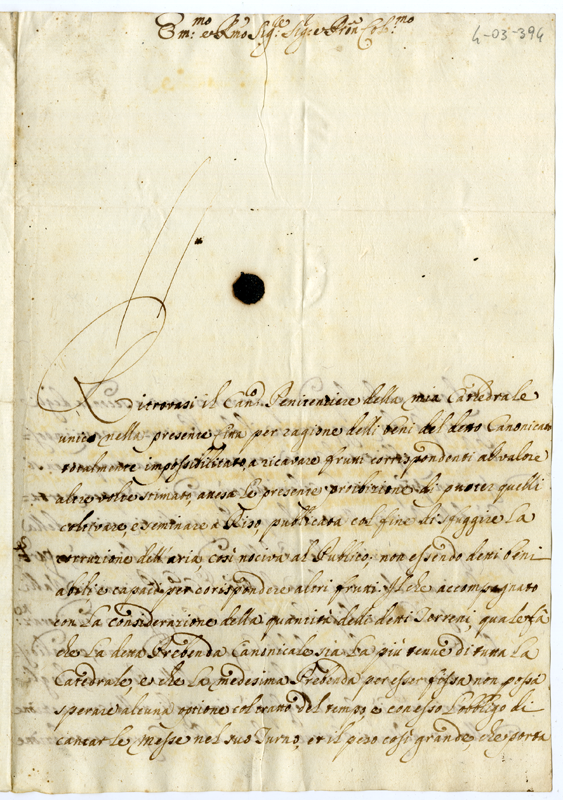 Em:mo e Rmo Sig:re Sig:e Prõn Col:mo
4-03-394
Ritrovasi il Cano: Penitenziere della mia Cattedrale
unico nella presente per ragione delli beni del detto Canonicato
totalmente impossibilitato a ricavare frutti corrispondenti al valore
altre volte stimato, attesa le presente proibizione di puoter quelli
coltivare e seminare a Riso, publicata col fine di sfuggire la
corruzione dell'aria così nociva al Publico, non essendo detti beni
abili e capaci per corispondere altri frutti. Il che accompagnato
con la considerazione della quantità delli detti Terreni, qual e fà
che la detta Prebenda Canonicale sia la più tenue di tutta la
Catedrale, e che la medesima Prebenda per esser fissa non possa
sperare alcuna ottione col tratto del tempo, e con esso l'obbligo di
cantar le Messe nel suo Turno, et il peso così grande, che porta